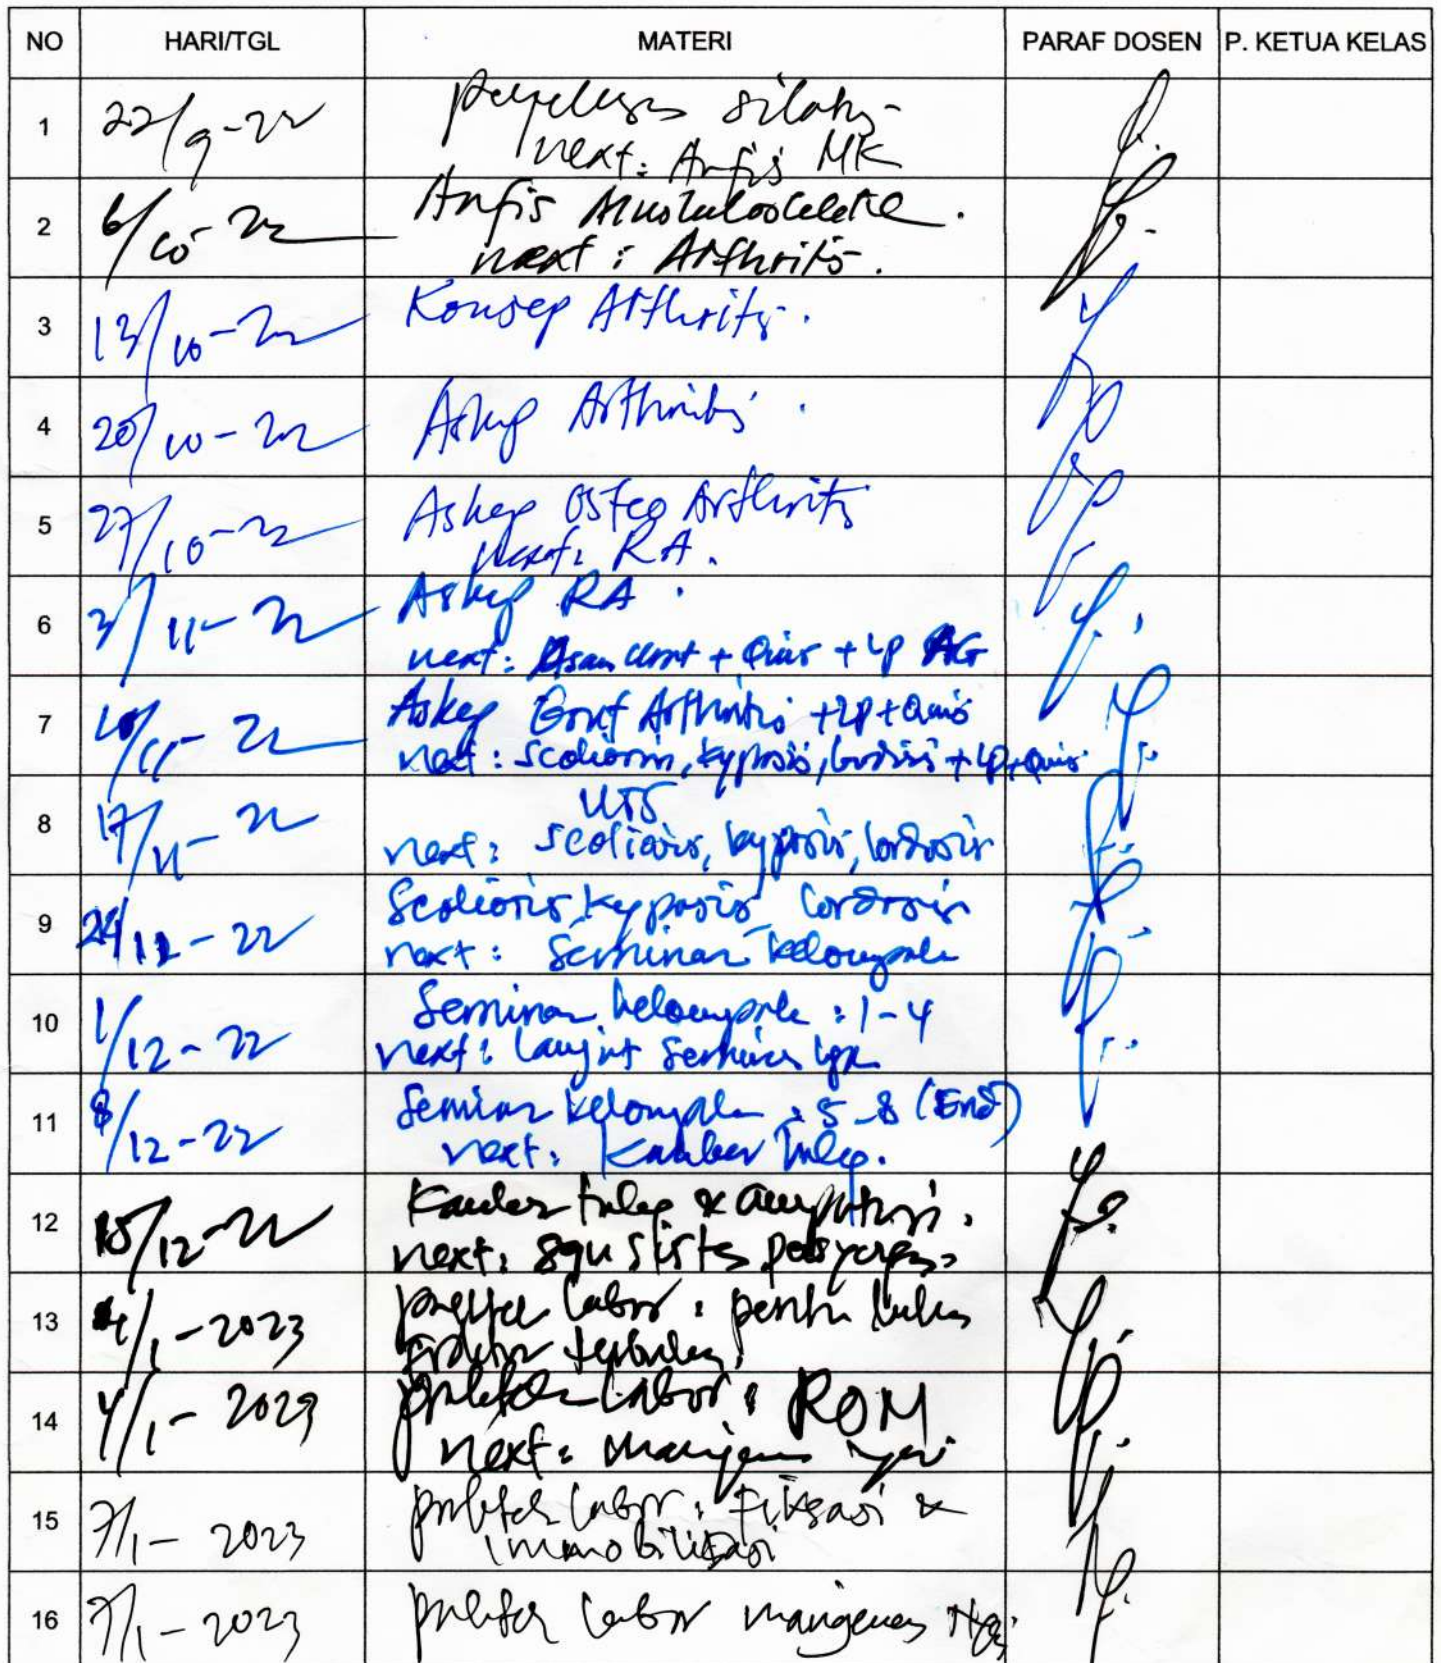 NO HARI/TGL MATERI PARAF DOSEN P. KETUA KELAS
1 22/9-22 silabus
next: Anfis MK
2 6/10-22 Anfis Muskuloskeletal.
next: Arthritis.
3 13/10-22 Konsep Arthritis.
4 20/10-22 Askep Arthritis.
5 27/10-22 Askep Osteo Arthritis
next: RA.
6 3/11-22 Askep RA.
next: + Quis + LP AG
7 10/11-22 Askep Gout Arthritis + LP + Quis
next: Scoliosis, kyposis, lordosis + LP + Quis
8 17/11-22 UTS
next: Scoliosis, kyposis, lordosis
9 24/11-22 Scoliosis, kyposis, lordosis
next: Seminar kelompok
10 1/12-22 Seminar kelompok: 1-4
next: lanjut seminar
11 8/12-22 Seminar kelompok: 5-8 (End)
next: Kanker tulg.
12 15/12-22 Kanker tulg & amputasi.
next:
13 4/1-2023 labor:
14 4/1-2023 labor: ROM
next: nyeri
15 7/1-2023 labor: Fiksasi &
immobilisasi
16 7/1-2023 labor